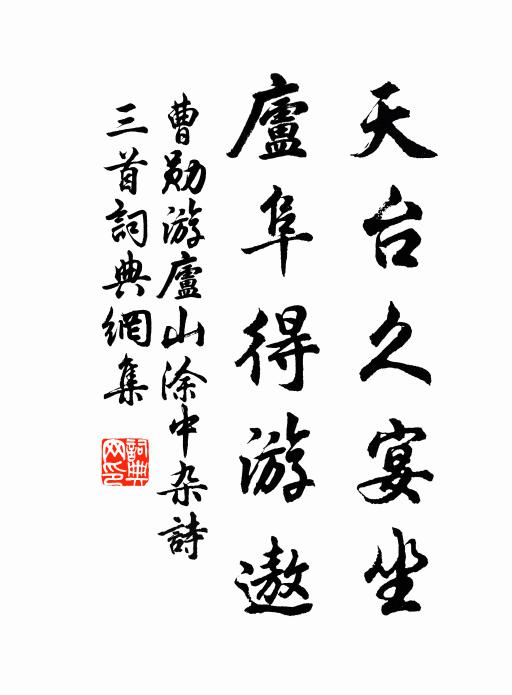 天台久宴坐
廬阜得游遨
曹勛游廬山涂中杂詩
三首詞典網集
詞典
网印